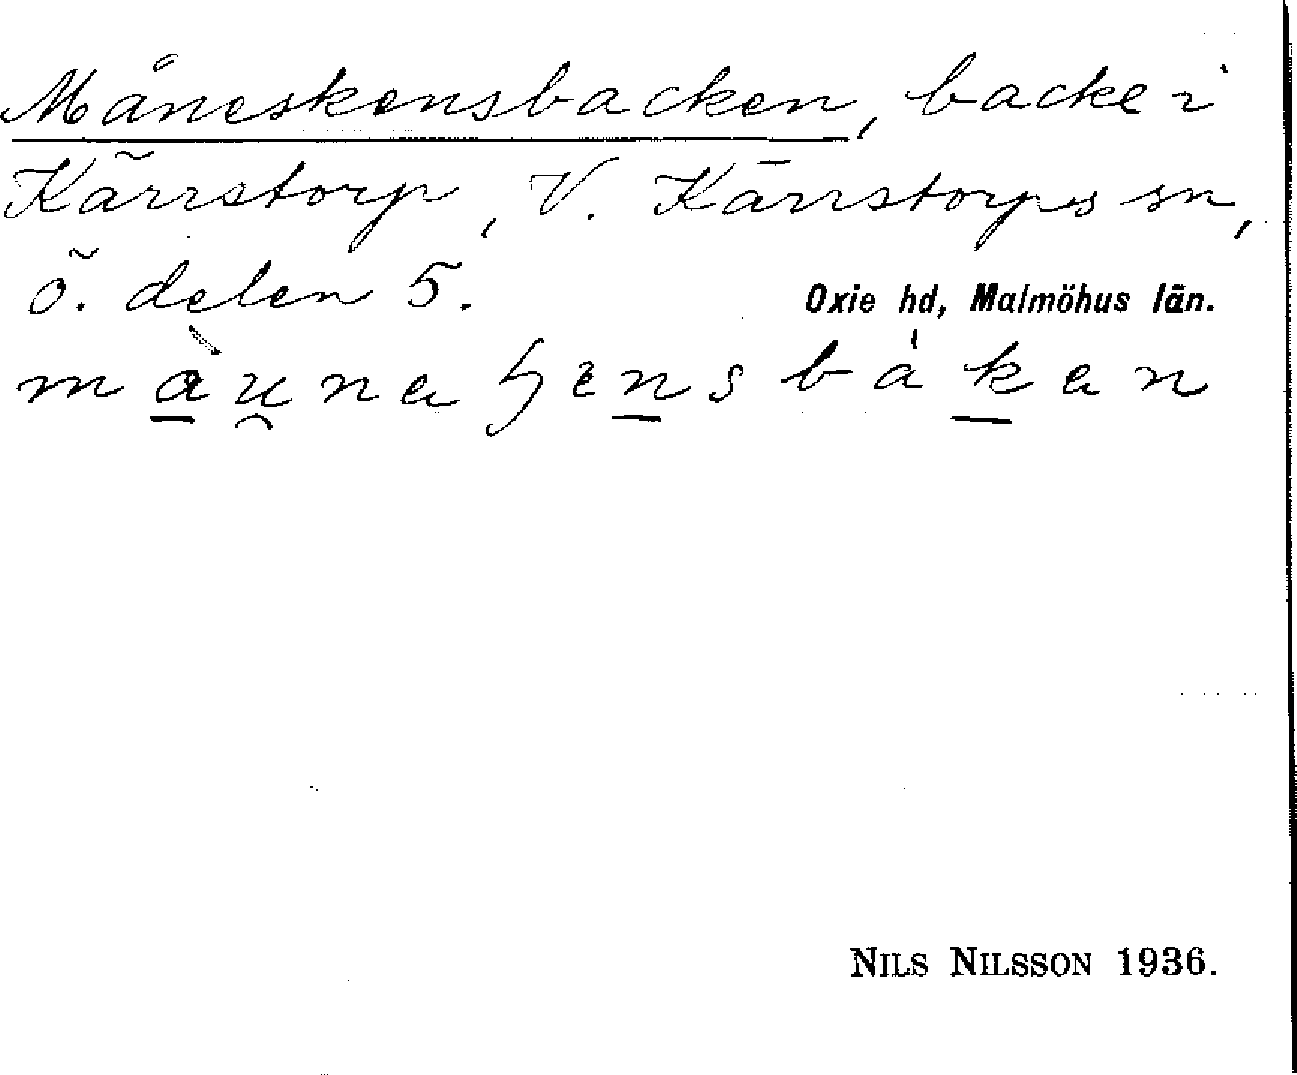 Måneskensbacken, backe i
Kärrstorp, V. Kärrstorps sn,
ö. delen 5.
Oxie hd, Malmöhus län.
NILS NILSSON 1936.